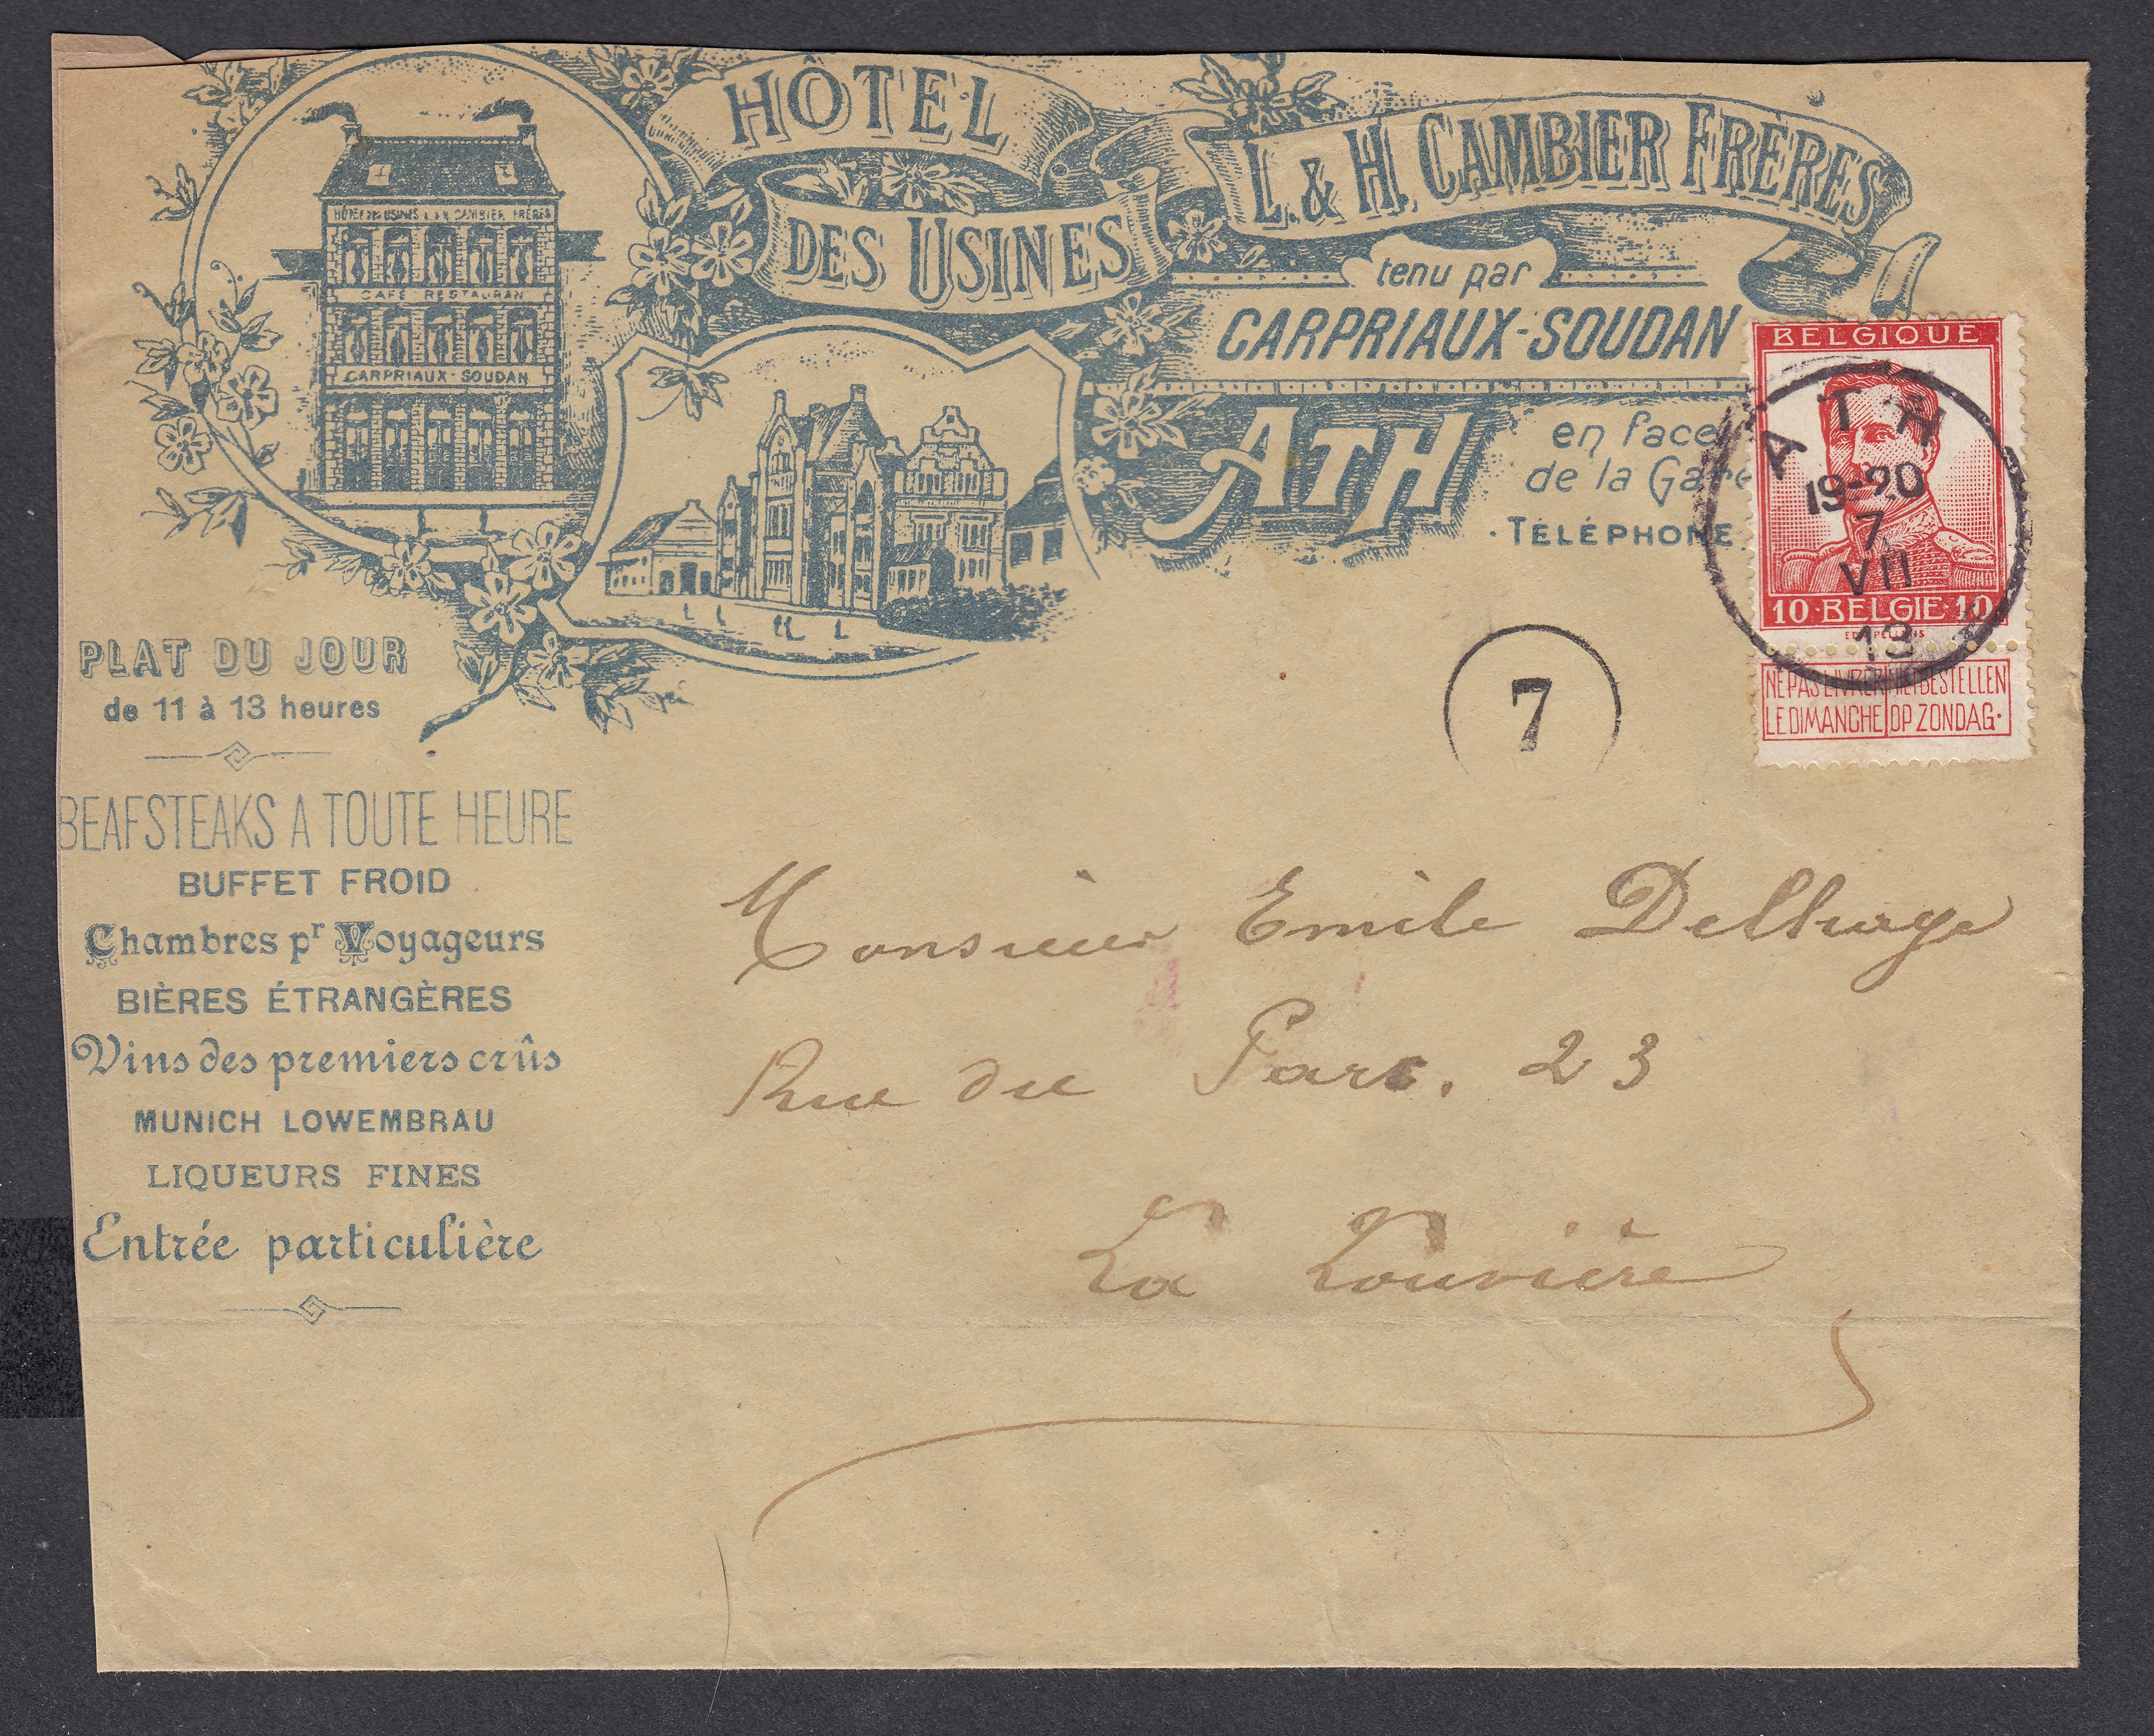 HÔTEL
DES USINES
L. & H. CAMBIER FRÈRES
tenu par
CARPRIAUX-SOUDAN
ATH
en face
de la Gare
· TÉLÉPHONE
HÔTEL DES USINES L. & H. CAMBIER FRÈRES
CAFÉ RESTAURAN
CARPRIAUX-SOUDAN
BELGIQUE
10·BELGIE·10
NE PAS LIVRER NIET BESTELLEN
LE DIMANCHE OP ZONDAG·
ATH
19-20
7
VII
13
7
PLAT DU JOUR
de 11 à 13 heures
BEAFSTEAKS A TOUTE HEURE
BUFFET FROID
Chambres pr Voyageurs
BIÈRES ÉTRANGÈRES
Vins des premiers crûs
MUNICH LOWEMBRAU
LIQUEURS FINES
Entrée particulière
Monsieur Emile Delhaye
Rue du Parc. 23
La Louvière